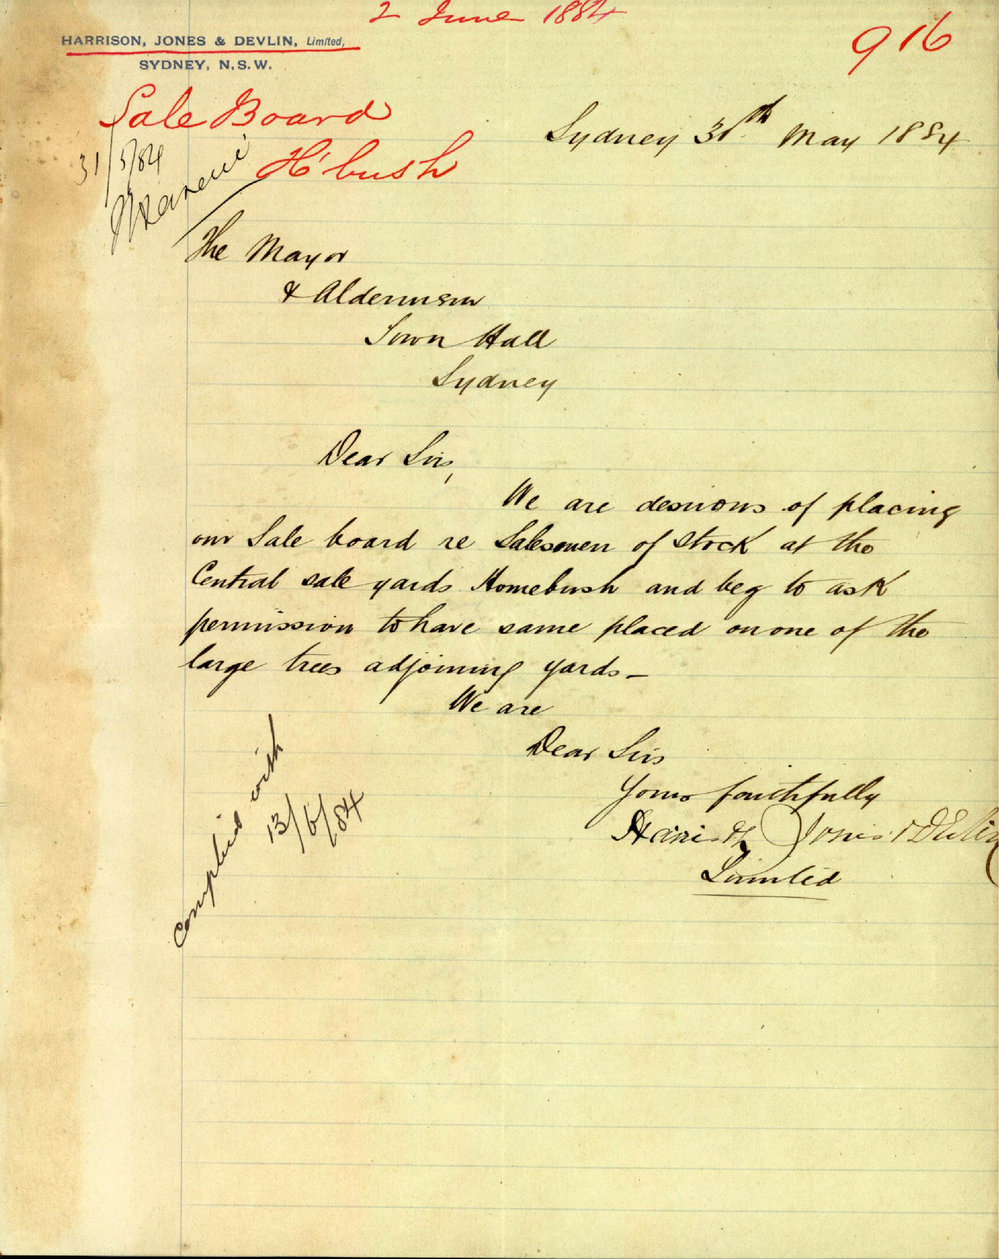 2 June 1884
HARRISON, JONES & DEVLIN, Limited,
SYDNEY, N.S.W.
916
Sale Board
H'bush
31/5/84
Sydney 30th May 1884
The Mayor
& Aldermen
Town Hall
Sydney
Dear Sirs,
We are desirous of placing
our Sale board re Salesmen of Stock at the
Central sale yards Homebush and beg to ask
permission to have same placed on one of the
large trees adjoining yards –
We are
Dear Sirs
Yours faithfully
Harrison Jones & Devlin
Limited
Complied with
13/6/84